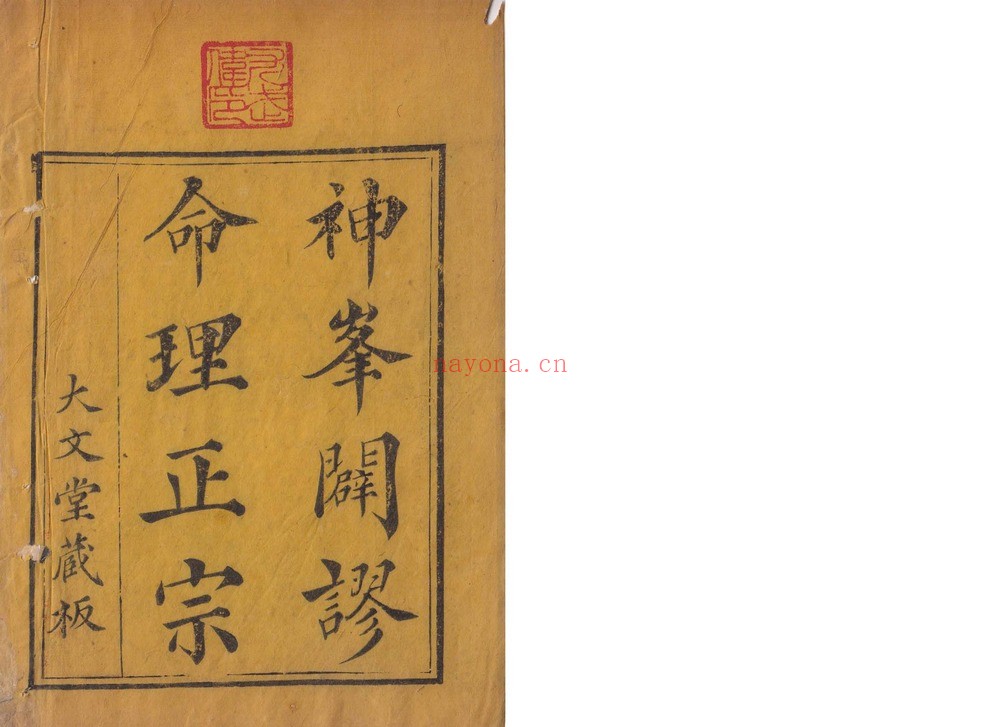 神峯闢謬
命理正宗
大文堂蔵板
nayona.cn